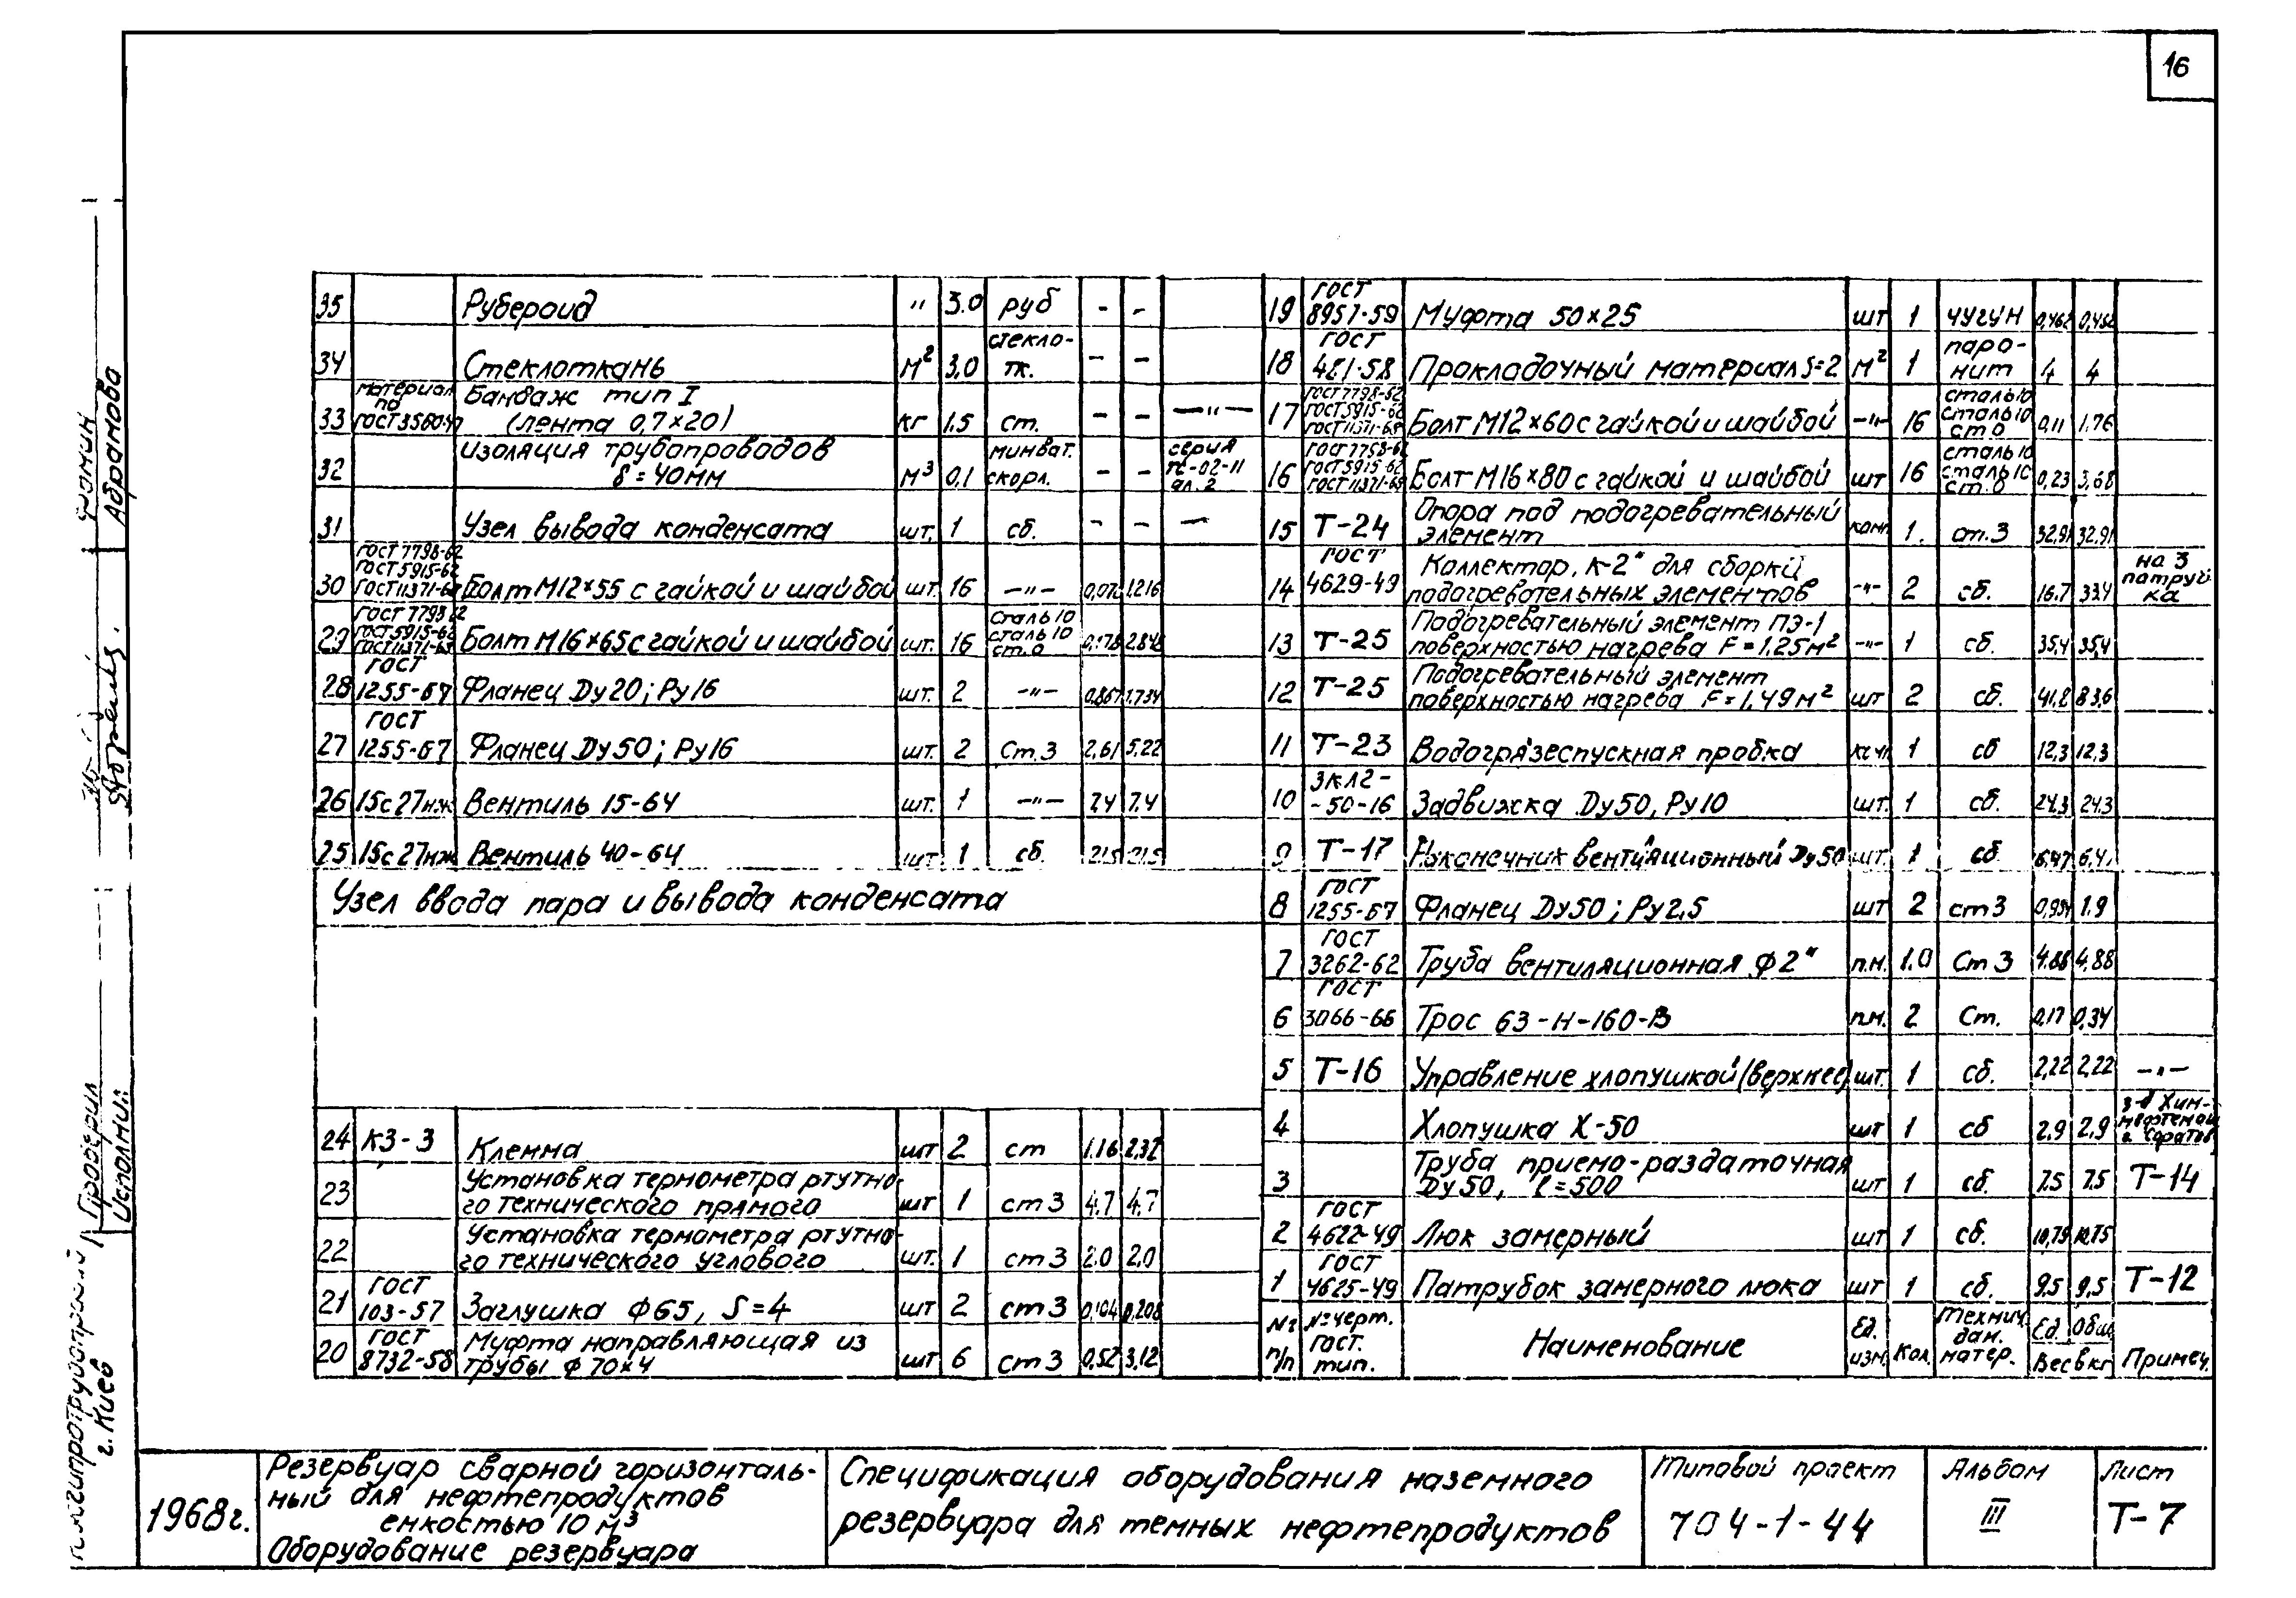 16
35 Рубероид " 3.0 руб - -
34 Стеклоткань м² 3,0 стекло-тк. - -
33 материал по ГОСТ3560-47 Бандаж тип I (лента 0,7×20) кг 1.5 ст. - - —"—
32 изоляция трубопроводов δ=40мм м³ 0,1 минват. скорл. - - серия ТС-02-11 ал.2
31 Узел вывода конденсата шт. 1 сб. - - —
30 ГОСТ 7798-62 ГОСТ 5915-62 ГОСТ11371-68 Болт М12×55 с гайкой и шайбой шт. 16 —"— 0,076 1.216
29 ГОСТ 7798-62 ГОСТ 5915-62 ГОСТ11371-68 Болт М16×65 с гайкой и шайбой шт. 16 сталь10 сталь10 ст.0 0,178 2.848
28 ГОСТ 1255-67 Фланец Dу20; Ру16 шт. 2 —"— 0,867 1,734
27 ГОСТ 1255-67 Фланец Dу50; Ру16 шт. 2 Ст.3 2,61 5,22
26 15с27нж Вентиль 15-64 шт. 1 —"— 7.4 7.4
25 15с27нж Вентиль 40-64 шт. 1 сб. 21.5 21.5
Узел ввода пара и вывода конденсата
24 КЗ-3 Клемма шт 2 ст 1.16 2.32
23 Установка термометра ртутно-
го технического прямого шт 1 ст3 4,7 4,7
22 Установка термометра ртутно-
го технического углового шт. 1 ст3 2.0 2,0
21 ГОСТ 103-57 Заглушка ф65, S=4 шт 2 ст3 0,104 0,208
20 ГОСТ 8732-58 Муфта направляющая из
трубы ф70×4 шт 6 ст3 0,52 3,12
19 ГОСТ 8957-59 Муфта 50×25 шт 1 чугун 0,462 0,462
18 ГОСТ 481-58 Прокладочный материал S=2 м² 1 паро-нит 4 4
17 ГОСТ7798-62 ГОСТ5915-62 ГОСТ11371-68 Болт М12×60 с гайкой и шайбой —"— 16 сталь10 сталь10 ст0 0,11 1,76
16 ГОСТ7798-62 ГОСТ5915-62 ГОСТ11371-68 Болт М16×80 с гайкой и шайбой шт 16 сталь10 сталь10 ст.0 0,23 3,68
15 Т-24 Опора под подогревательный
элемент комп 1. ст.3 32,91 32,91
14 ГОСТ 4629-49 Коллектор, К-2" для сборки
подогревательных элементов -"- 2 сб. 16.7 33.4 на 3 патруб-ка
13 Т-25 Подогревательный элемент ПЭ-1
поверхностью нагрева F=1.25м² -"- 1 сб. 35,4 35,4
12 Т-25 Подогревательный элемент
поверхностью нагрева F=1,49м² шт 2 сб. 41,8 83,6
11 Т-23 Водогрязеспускная пробка 1 сб 12,3 12,3
10 ЗКЛ2-50-16 Задвижка Dу50, Ру10 шт. 1 сб. 24.3 24.3
9 Т-17 Наконечник вентиляционный Dу50 шт. 1 сб 6,47 6,47
8 ГОСТ 1255-67 Фланец Dу50; Ру2,5 шт 2 ст3 0,954 1.9
7 ГОСТ 3262-62 Труба вентиляционная ф2" п.м. 1.0 Ст3 4.88 4,88
6 ГОСТ 3066-66 Трос 63-Н-160-В п.м. 2 Ст. 0,17 0,34
5 Т-16 Управление хлопушкой (верхнее) шт. 1 сб. 2,22 2,22 —"—
4 Хлопушка Х-50 шт 1 сб 2,9 2,9 з-д Хим-нефтемаш г. Саратов
3 Труба приемо-раздаточная
Dу50, ℓ=500 шт 1 сб. 7.5 7.5 Т-14
2 ГОСТ 4622-49 Люк замерный шт 1 сб. 10,75 10,75
1 ГОСТ 4625-49 Патрубок замерного люка шт 1 сб. 9.5 9,5 Т-12
№№ п/п №черт. ГОСТ. тип. Наименование Ед. изм. Кол. Технич. дан. матер. Ед. Общ. Вес в кг Примеч.
Фомин
Абрамова
Проверил
Исполнил
г. Киев
1968г.
Резервуар сварной горизонталь-
ный для нефтепродуктов
емкостью 10 м³
Оборудование резервуара
Спецификация оборудования наземного
резервуара для темных нефтепродуктов
Типовой проект
704-1-44
Альбом
III
Лист
Т-7